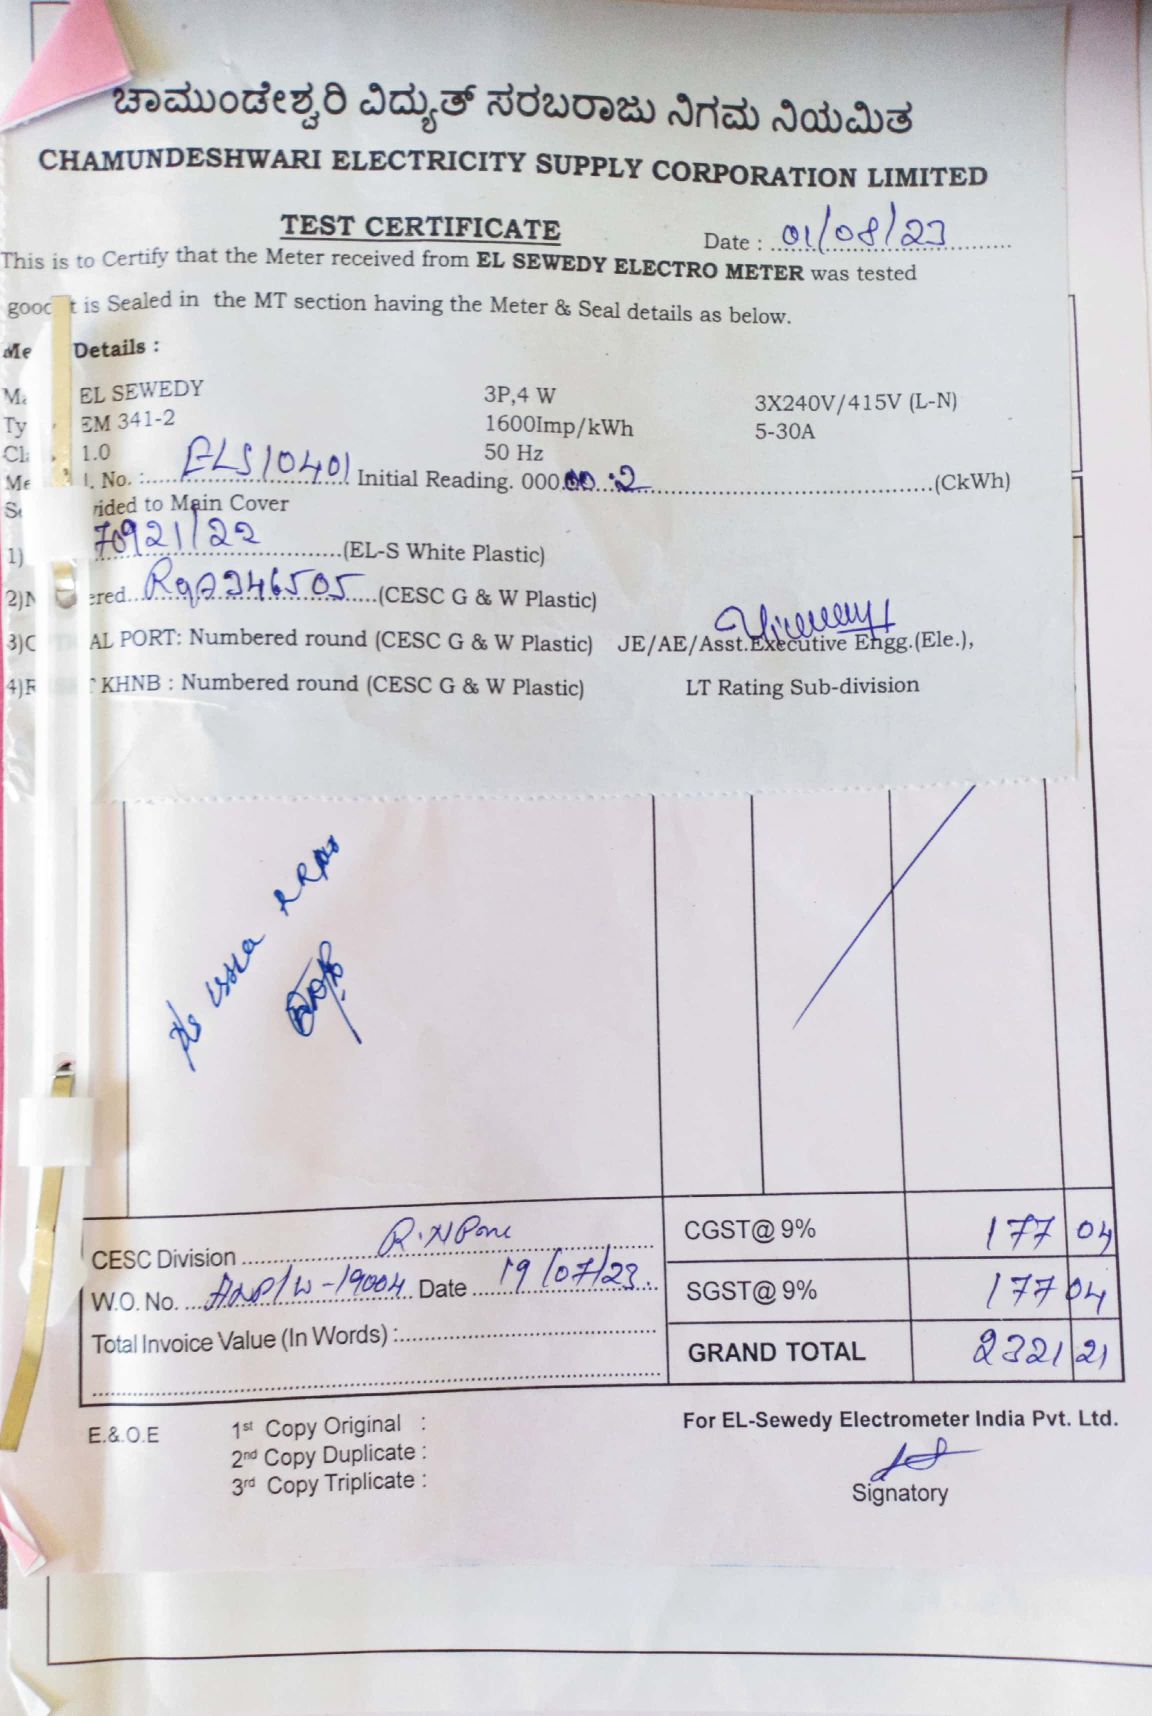 ಚಾಮುಂಡೇಶ್ವರಿ ವಿದ್ಯುತ್ ಸರಬರಾಜು ನಿಗಮ ನಿಯಮಿತ
CHAMUNDESHWARI ELECTRICITY SUPPLY CORPORATION LIMITED
TEST CERTIFICATE
Date : 01/08/23
This is to Certify that the Meter received from EL SEWEDY ELECTRO METER was tested
good t is Sealed in the MT section having the Meter & Seal details as below.
Me Details :
Ma EL SEWEDY 3P,4 W 3X240V/415V (L-N)
Ty EM 341-2 1600Imp/kWh 5-30A
Cla 1.0 50 Hz
Me l. No. : ELS10401 Initial Reading. 000 00.2 (CkWh)
Se vided to Main Cover
1) 70921/22 (EL-S White Plastic)
2)N ered (CESC G & W Plastic)
3)O AL PORT: Numbered round (CESC G & W Plastic) JE/AE/Asst.Executive Engg.(Ele.),
4)R T KHNB : Numbered round (CESC G & W Plastic) LT Rating Sub-division
CESC Division
W.O. No. Date 19/07/23
Total Invoice Value (In Words) :
CGST@ 9% 177 04
SGST@ 9% 177 04
GRAND TOTAL 2321 21
E.&.O.E
1st Copy Original :
2nd Copy Duplicate :
3rd Copy Triplicate :
For EL-Sewedy Electrometer India Pvt. Ltd.
Signatory